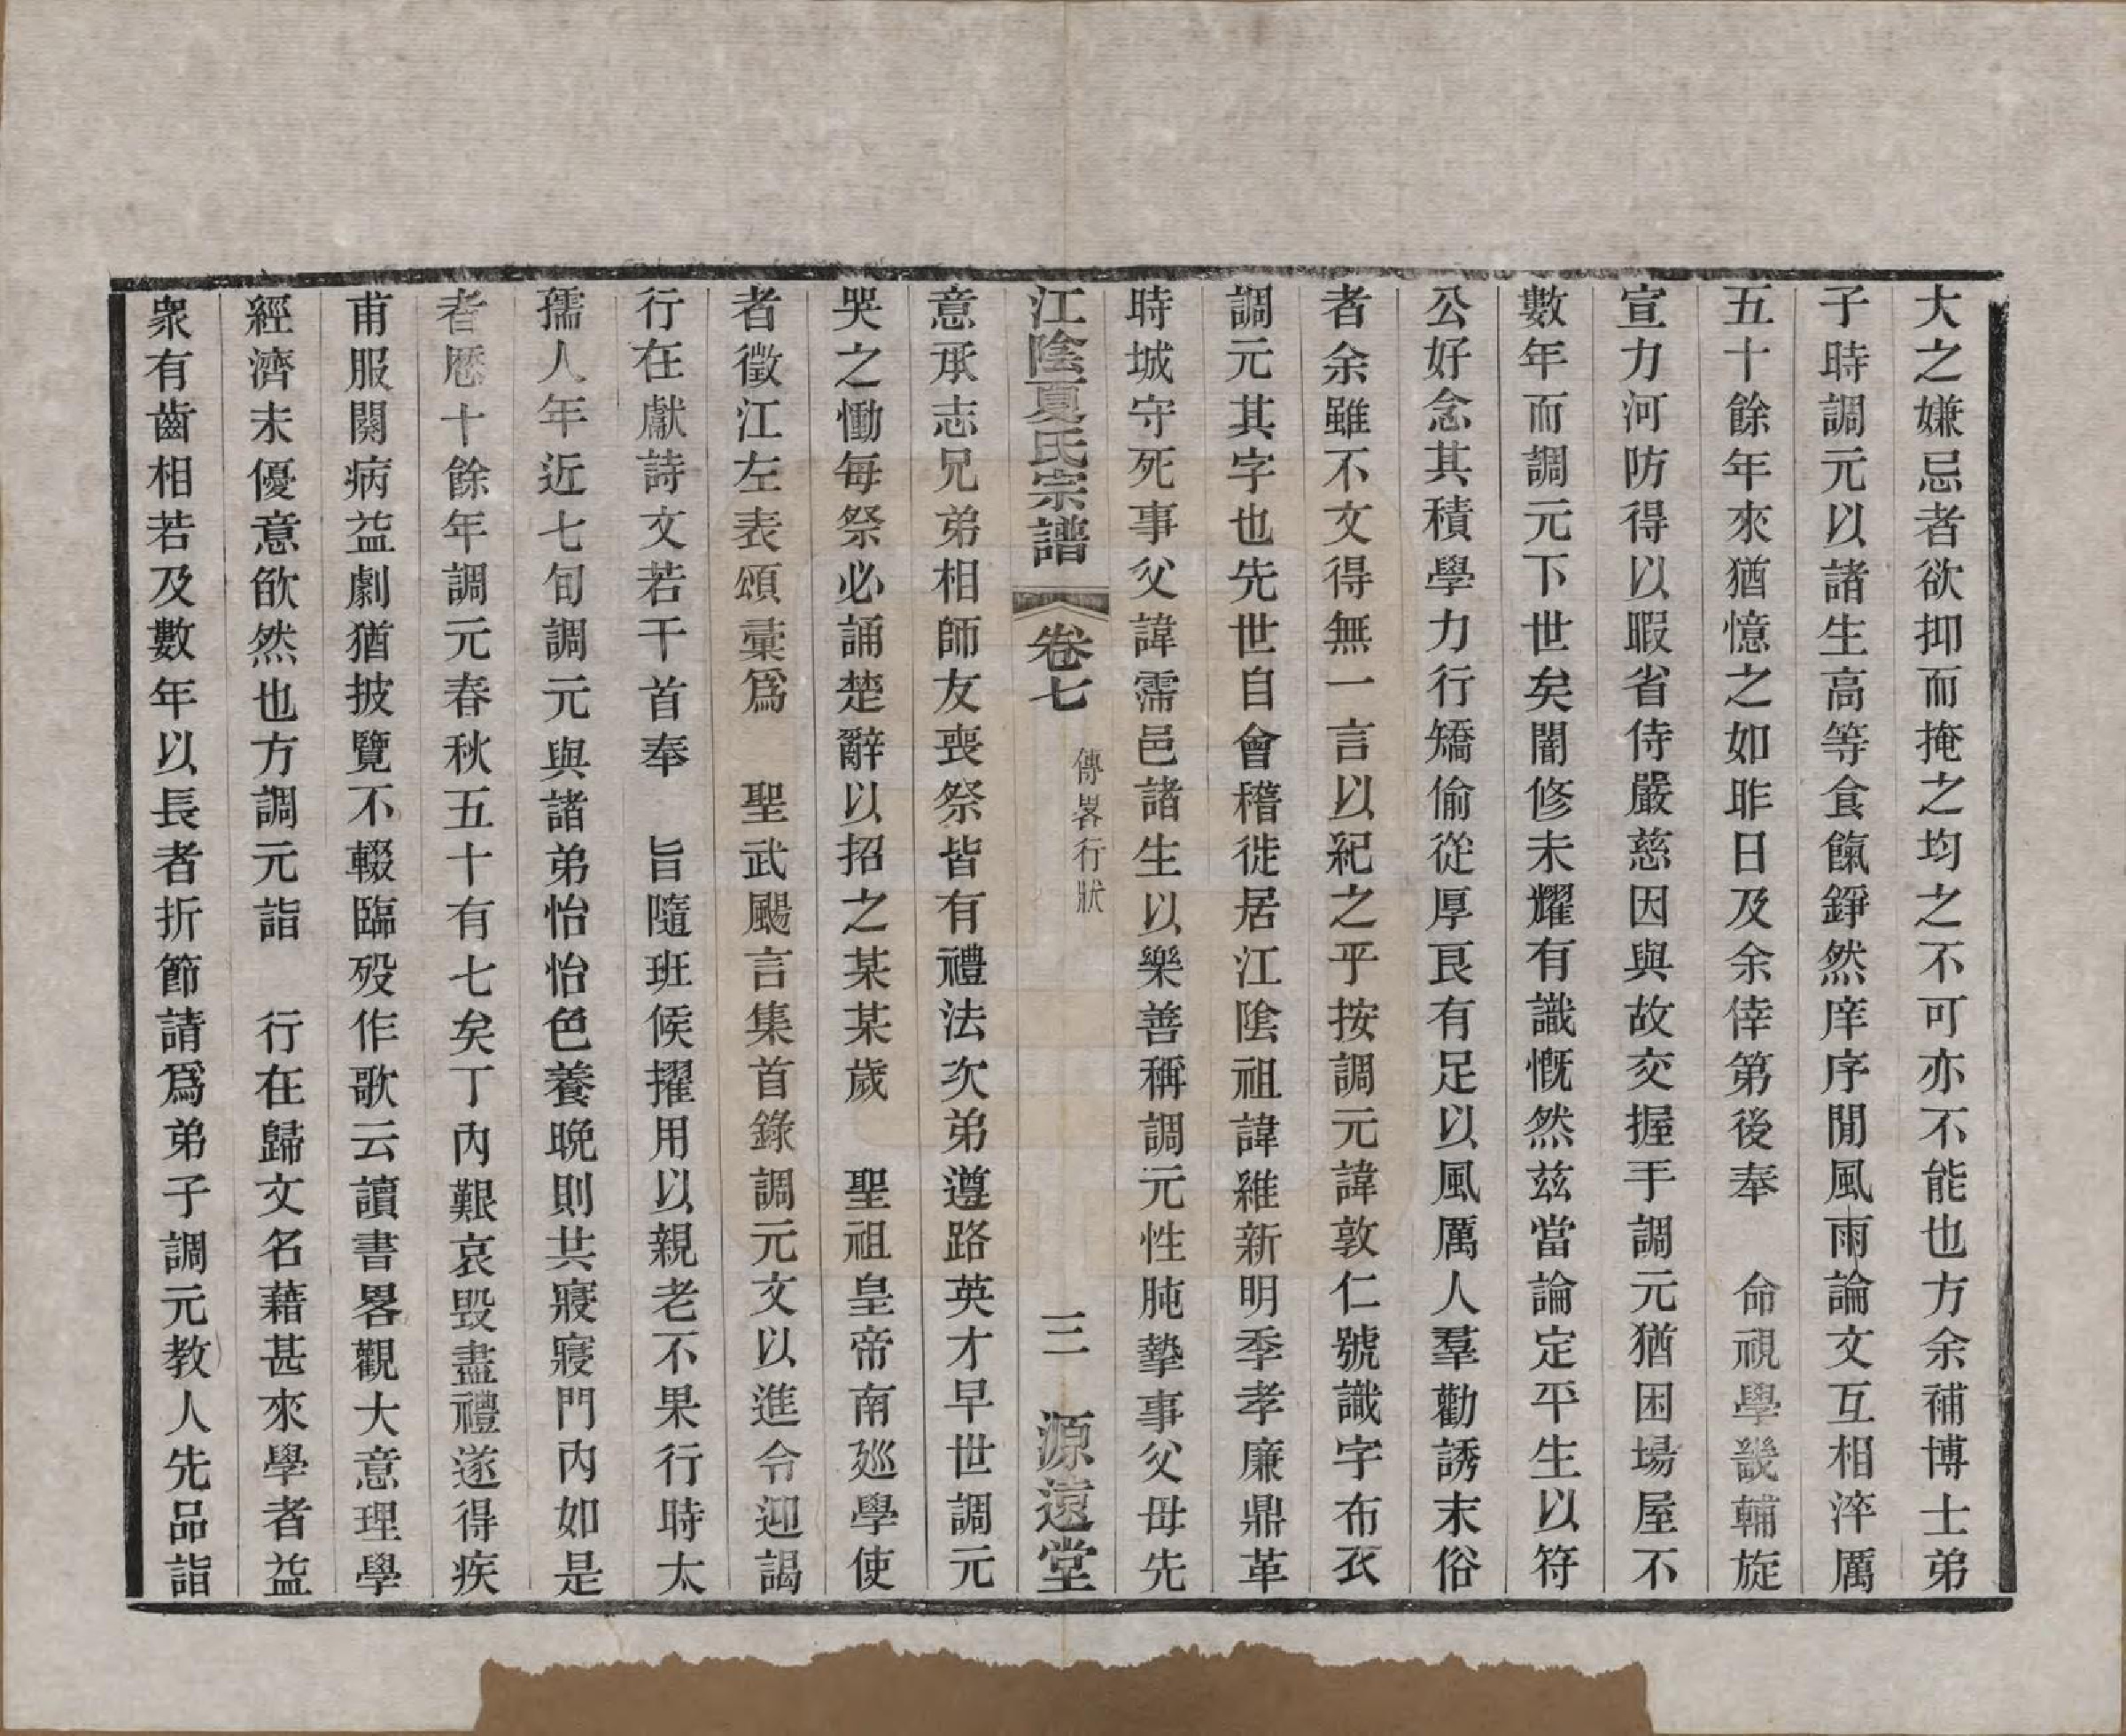 大之嫌忌者欲抑而掩之均之不可亦不能也方余補博士弟
子時調元以諸生高等食餼錚然庠序閒風雨論文互相淬厲
五十餘年來猶憶之如昨日及余倖第後奉　命視學畿輔旋
宣力河防得以暇省侍嚴慈因與故交握手調元猶困場屋不
數年而調元下世矣闇修未耀有識慨然兹當論定平生以符
公好念其積學力行矯偷從厚良有足以風厲人羣勸誘末俗
者余雖不文得無一言以紀之乎按調元諱敦仁號識字布衣
調元其字也先世自會稽徙居江陰祖諱維新明季孝廉鼎革
時城守死事父諱霈邑諸生以樂善稱調元性肫摯事父母先
江陰夏氏宗譜　卷七　傳畧行狀　三　源遠堂
意承志兄弟相師友喪祭皆有禮法次弟遵路英才早世調元
哭之慟每祭必誦楚辭以招之某某歲　聖祖皇帝南廵學使
者徵江左表頌彙爲　聖武颺言集首錄調元文以進令迎謁
行在獻詩文若干首奉　旨隨班候擢用以親老不果行時太
孺人年近七旬調元與諸弟怡怡色養晚則共寢寢門內如是
者厯十餘年調元春秋五十有七矣丁內艱哀毀盡禮遂得疾
甫服闋病益劇猶披覽不輟臨歿作歌云讀書畧觀大意理學
經濟未優意欿然也方調元詣　行在歸文名藉甚來學者益
衆有齒相若及數年以長者折節請爲弟子調元教人先品詣